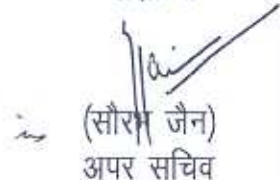 (सौरभ जैन)
अपर सचिव